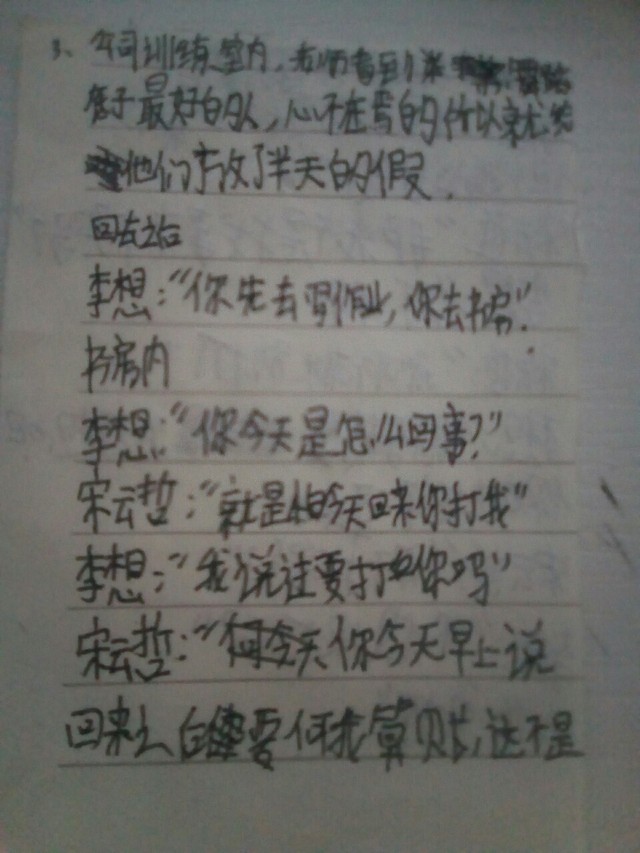 3、公司训练室内，老师看到
最好的队，心不在焉的所以就给
他们放了半天的假.
回去之后
李想：“你先去写作业，你去书房”.
书房内
李想：“你今天是怎么回事？”
宋云哲：“就是怕今天回来你打我”
李想：“我说过要打你吗”
宋云哲：“可今天你今天早上说
回来之后要何我算账，这不是